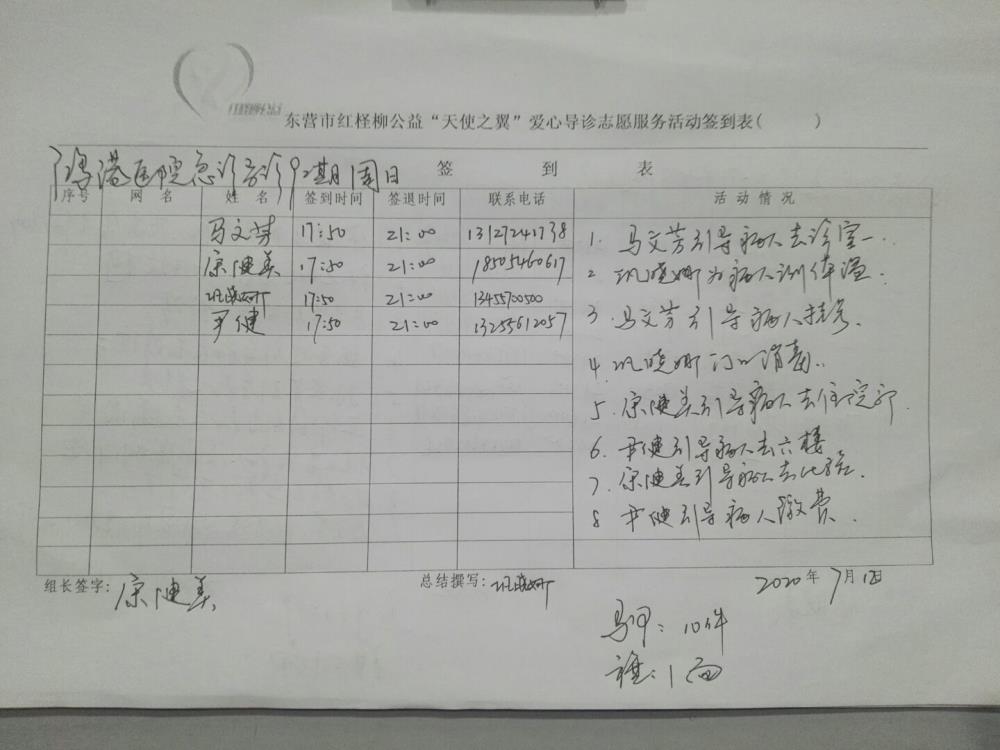 东营市红柽柳公益“天使之翼”爱心导诊志愿服务活动签到表( )
签 到 表
港医院急诊 周日
序号 网 名 姓 名 签到时间 签退时间 联系电话 活 动 情 况
马文芳 17:50 21:00 13127241738
康健美 17:50 21:00 18505460617
巩晓姗 17:50 21:00 13455700500
尹健 17:50 21:00 13255612057
1. 马文芳引导病人去诊室一.
2. 巩晓姗为病人测体温.
3. 马文芳引导病人挂号.
4. 巩晓姗门口消毒.
5. 康健美引导病人去住院部.
6. 尹健引导病人去六楼
7. 康健美引导病人去化验.
8 尹健引导病人缴费.
组长签字: 康健美 总结撰写: 巩晓姗 2020年 7月1日
马甲: 10件
1面